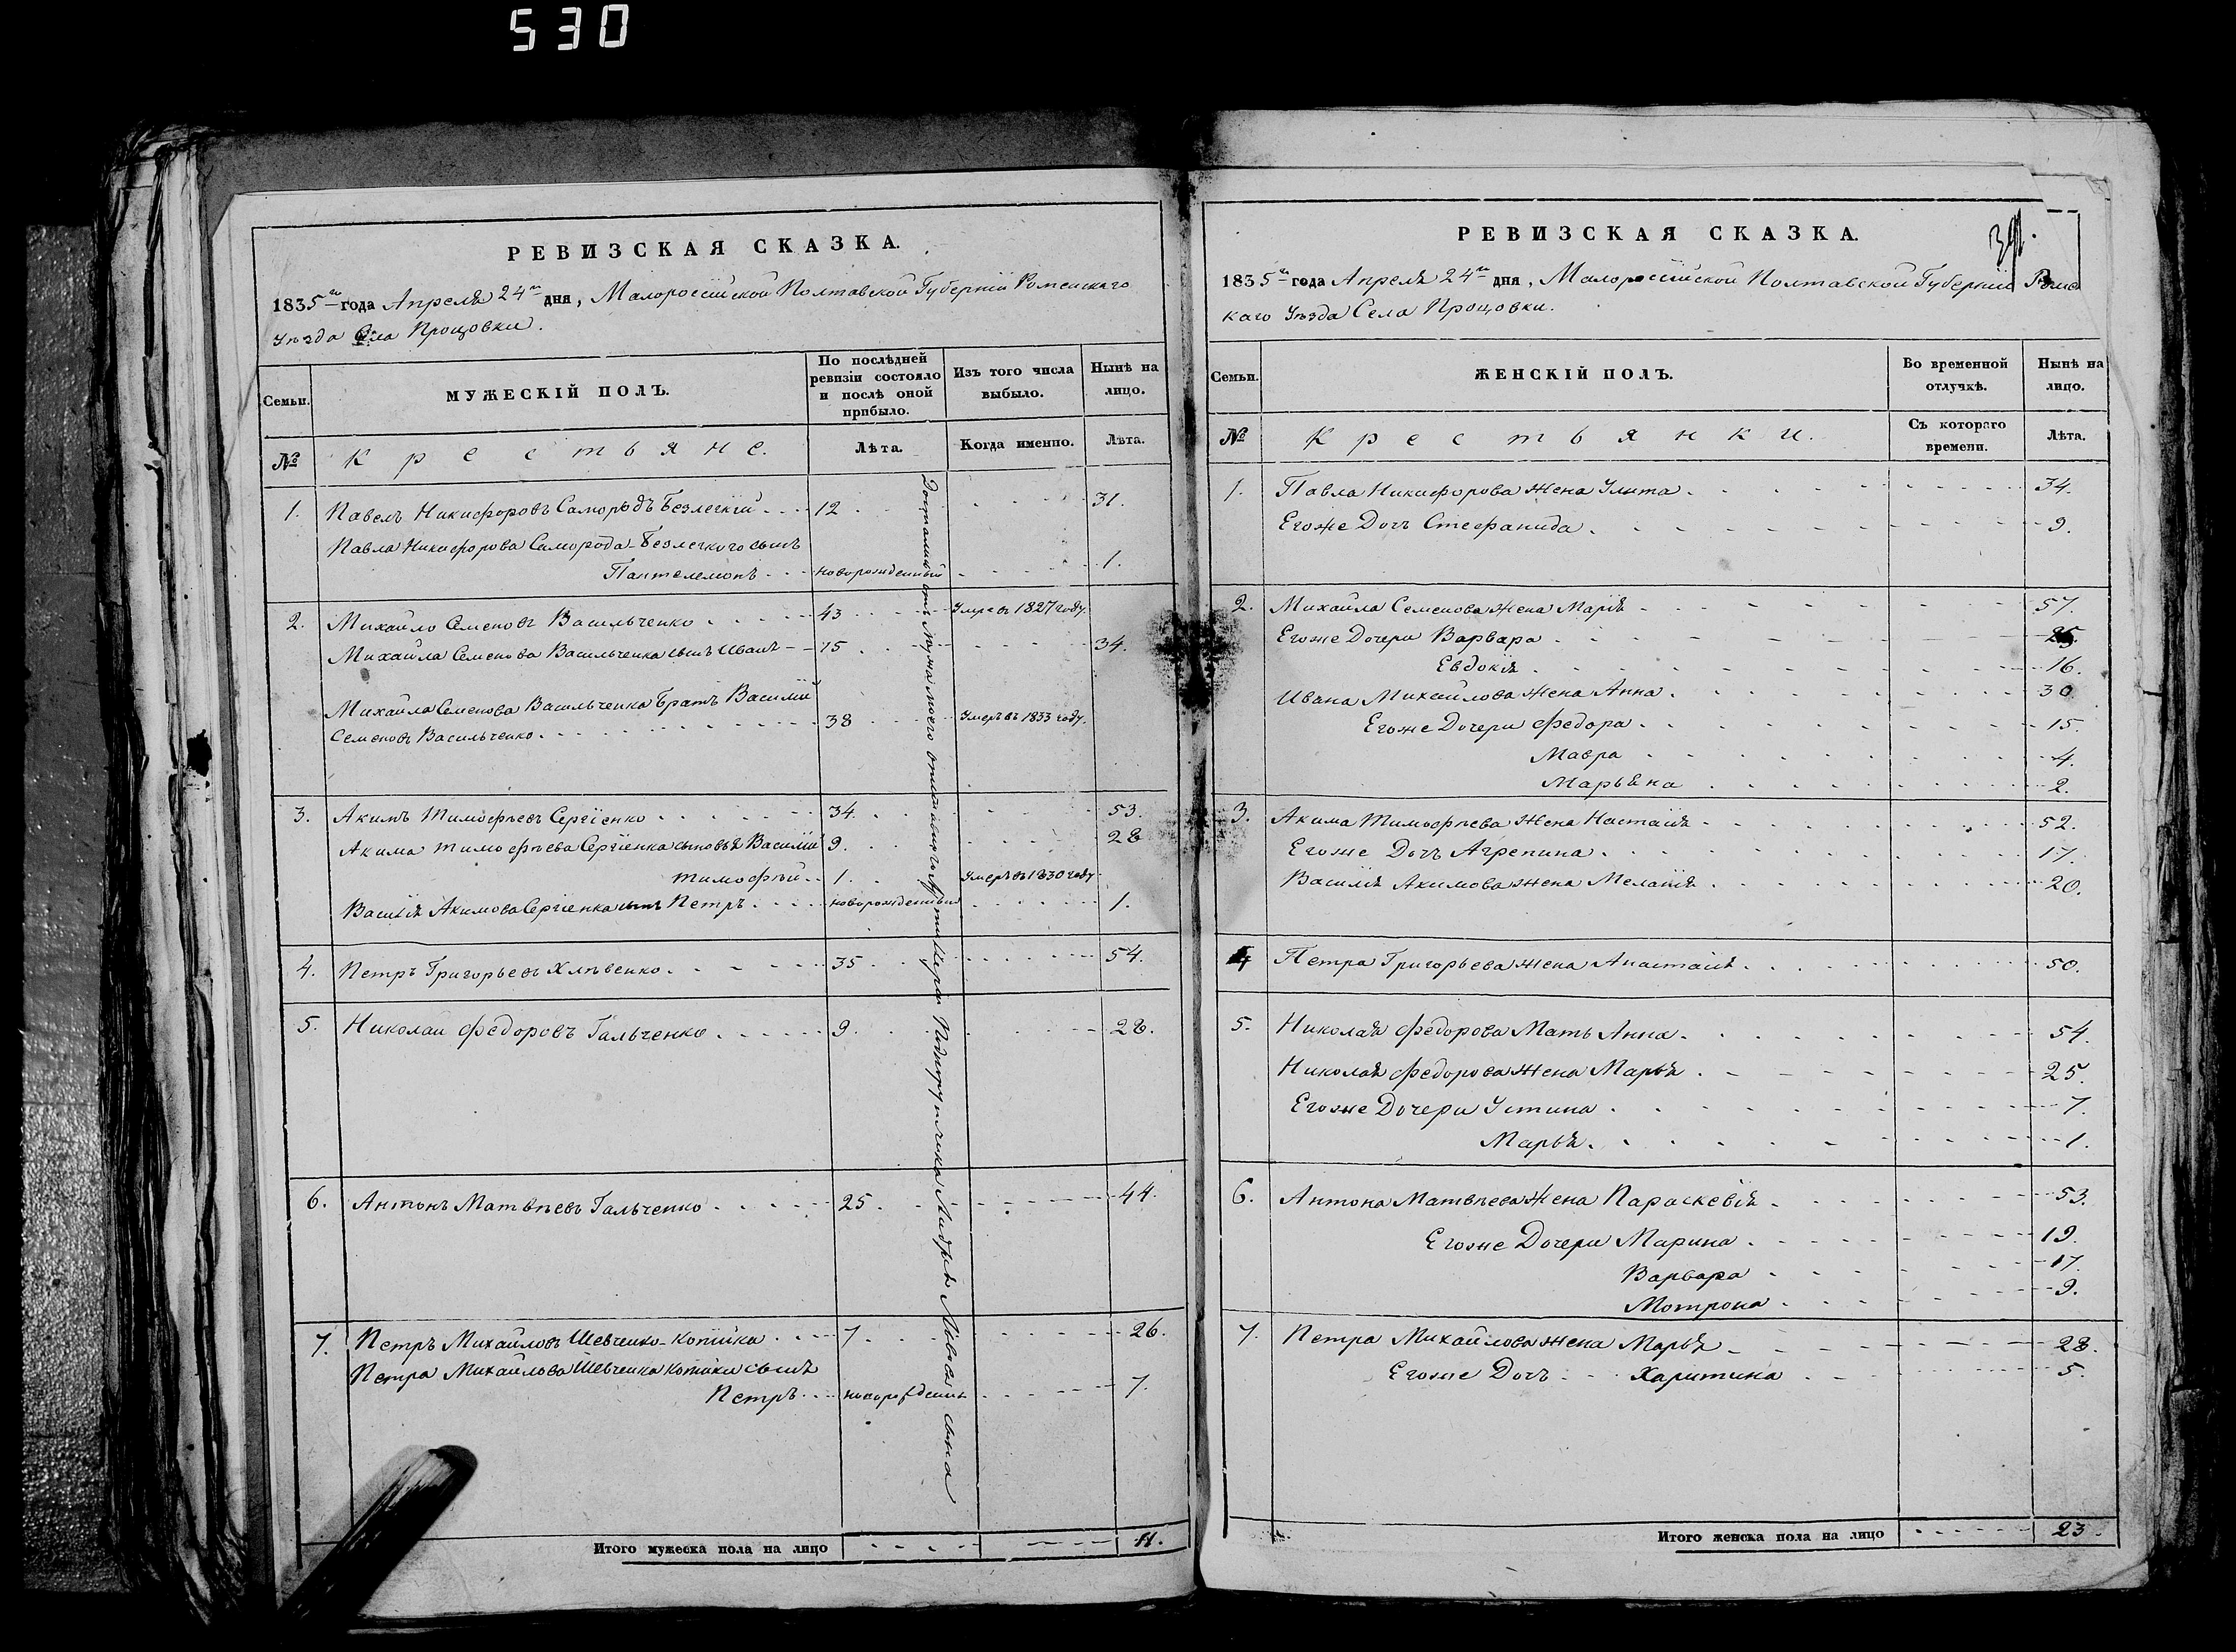 530
РЕВИЗСКАЯ СКАЗКА.
1835го года Апреля 24го дня, Малоросiйской Полтавской Губернiи Роменскаго
Уѣзда Села Процовки.
Семьи.
МУЖЕСКIЙ ПОЛЪ.
По послѣдней ревизiи состояло и послѣ оной прибыло.
Изъ того числа выбыло.
Нынѣ на лицо.
№
Крестьяне.
Лѣта.
Когда именно.
Лѣта.
1. Павелъ Никифоровъ Самородъ Безлегкiй 12 31.
Павла Никифорова Саморода-Безлегкого сынъ
Пантелемонъ новорожденный 1.
2. Михайло Семеновъ Васильченко 43 Умре въ 1827 году.
Михайла Семенова Васильченка сынъ Иванъ 15 34.
Михайла Семенова Васильченка братъ Василiй
Семеновъ Васильченко 38 Умеръ въ 1833 году.
3. Акимъ Тимофѣевъ Сергiенко 34. 53.
Акима Тимофѣева Сергiенка сыновья Василiй 9. 28
Тимофѣй 1. Умеръ въ 1830 году
Василiя Акимова Сергiенка сынъ Петръ новорожденный 1.
4. Петръ Григорьевъ Хлѣвенко 35 54.
5. Николай Федоровъ Гальченко 9. 28.
6. Антонъ Матвѣевъ Гальченко 25. 44.
7. Петръ Михайловъ Шевченко-Копiйка 7. 26.
Петра Михайлова Шевченка Копiйки сынъ
Петръ 7.
Итого мужеска пола на лицо 11.
сына
РЕВИЗСКАЯ СКАЗКА.
1835го года Апреля 24го дня, Малоросiйской Полтавской Губернiи
каго Уѣзда Села Процовки.
Семьи.
ЖЕНСКIЙ ПОЛЪ.
Во временной отлучкѣ.
Нынѣ на лицо.
№
Крестьянки.
Съ котораго времени.
Лѣта.
1. Павла Никифорова жена Улита 34.
Егоже Дочь Стефанида 9.
2. Михайла Семенова жена Марiя 57.
Егоже Дочери Варвара
Евдокiя 16.
Ивана Михайлова жена Анна 30
Егоже Дочери Федора 15.
Мавра 4.
Марьяна 2.
3. Акима Тимофѣева жена Настасiя 52.
Егоже Дочь Агрепина 17.
Василiя Акимова жена Меланiя 20.
4 Петра Григорьева жена Анастасiя 50.
5. Николая Федорова Мать Анна 54.
Николая Федорова жена Марья 25.
Егоже Дочери Устина 7.
Марья 1.
6. Антона Матвѣева жена Параскевiя 53.
Егоже Дочери Марина 19.
Варвара 17.
Мотрона 9.
7. Петра Михайлова жена Марья 28.
Егоже Дочь Харитина 5.
Итого женска пола на лицо 23.